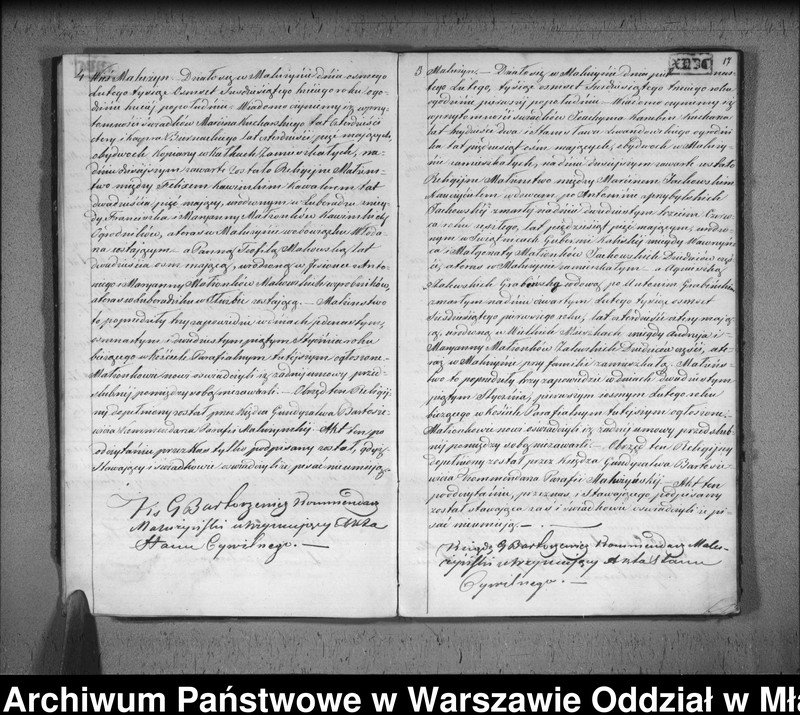 4 Wieś Malużyn. Działo się w Malużynie dnia osmego
Lutego tysiąc ośmset sześdziesiątego trzeciego roku o go-
dzinie trzeciej po południu. Wiadomo czynimy iż w przy-
tomności świadków Marcina Kucharskiego lat czterdzieści
cztery i Kacpra Biernackiego lat czterdzieści pięć mających,
obydwóch w zamieszkałych, na
dniu dzisiejszym zawarte zostało Religijne Małżeń-
stwo między Felixem kawalerem lat
dwadzieścia pięć mający, urodzonym w Luberadzu z nie-
gdy Franciszka i Maryanny Małżonków
Ogrodników, a teraz w Malużynie w obowiązku
na zostającym a Panną Teofilą Makowską lat
dwadzieścia osm mającą, urodzoną w z Anto-
niego i Maryanny Małżonków Makowskich wyrobników,
a teraz w Luberadzku w służbie zostającą. — Małżeństwo
to poprzedziły trzy zapowiedzie w dniach jedenastym,
osmnastym i dwudziestym piątym Stycznia roku
bieżącego w Kościele Parafialnym tutejszym ogłoszone
Małżonkowie nowi oświadczyli iż żadnej umowy przed-
ślubnej pomiędzy sobą nie zawarli. — Obrzęd ten Religij-
ny dopełniony został przez Księdza Gundysalwa Bartosze-
wicza Kommendarza Parafii Malużyńskiej. Akt ten po
odczytaniu przez Nas tylko podpisany został, gdyż
Stawający i świadkowie oświadczyli iż pisać nie umieją.
Ks G Bartoszewicz Kommendarz
Malużyński utrzymujący Akta
Stanu Cywilnego. —
17
XII 36
5 Malużyn. — Działo się w Malużynie dnia nas-
tego Lutego, tysiąc ośmset sześdziesiątego trzeciego roku,
o godzinie pierwszej po południu. Wiadomo czynimy iż
w przytomności świadków Joachyma
lat trzydzieści dwa i Stanisława ogrodni-
ka lat pięćdziesiąt ośm mających, obydwóch w Maluży-
nie zamieszkałych, na dniu dzisiejszym zawarte zostało
Religijne Małżeństwo między Marcinem Sachowskim
wdowcem po Antoninie z Przybylskich
Sachowskiej zmarłej na dniu dwudziestym trzecim Czerw-
ca roku zeszłego, lat pięćdziesiąt pięć mającym, urodzo-
nym w Gubernii Kaliskiej z niegdy Wawrzyń-
ca i Małgorzaty Małżonków Sachowskich
a teraz w Malużynie zamieszkałym — a Agnieszką
z Załuskich Grabowską wdową po Antonim Grabowskim
zmarłym na dniu czwartym Lutego tysiąc ośmset
sześdziesiątego pierwszego roku, lat czterdzieści cztery mają-
cą, urodzoną w Wielkich z niegdy Andrzeja i
Maryanny Małżonków Załuskich a te-
raz w Malużynie przy familii zamieszkałą. Małżeń-
stwo to poprzedziły trzy zapowiedzie w dniach dwudziestym
piątym Stycznia, pierwszym i osmym Lutego roku
bieżącego w Kościele Parafialnym tutejszym ogłoszone.
Małżonkowie nowi oświadczyli iż żadnej umowy przedślub-
nej pomiędzy sobą nie zawarli. — Obrzęd ten Religijny
dopełniony został przez Księdza Gundysalwa Bartosze-
wicza Kommendarza Parafii Malużyńskiej. — Akt ten
po odczytaniu, przez nas i stawającego podpisany
został stawająca zaś i świadkowie oświadczyli iż pi-
sać nie umieją. —
Ksiądz G Bartoszewicz Kommendarz Malu-
żyński utrzymujący Akta Stanu
Cywilnego. —
Archiwum Państwowe w Warszawie Oddział w Mła